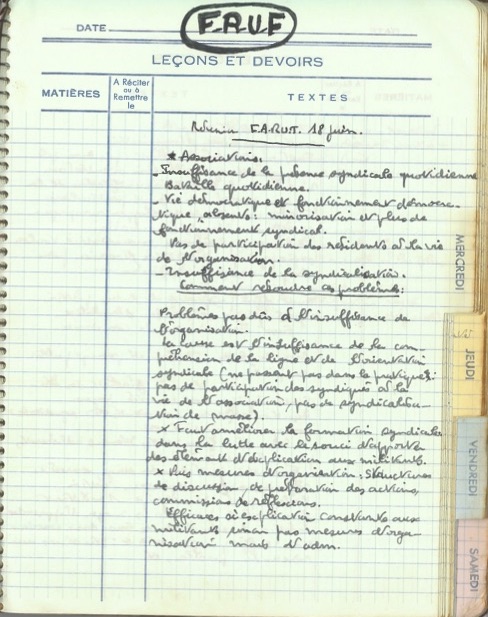 F.R.U.F
DATE
LEÇONS ET DEVOIRS
MATIÈRES
A Réciter
ou à
Remettre
le
TEXTES
Réunion F.A.R.U.T. 18 juin.
* Associations.
- Insuffisance de la présence syndicale quotidienne
Bataille quotidienne.
- Vie démocratique et fonctionnement démocra-
tique absents : minorisation et plus de
fonctionnement syndical.
Pas de participation des résidents à la vie
de l'organisation.
- Insuffisance de la syndicalisation.
Comment résoudre ces problèmes :
Problèmes pas dûs à l'insuffisance de
l'organisation.
La cause est l'insuffisance de la com-
préhension de la ligne et de l'orientation
syndicale (ne passent pas dans la pratique :
pas de participation des syndiqués à la
vie de l'association, pas de syndicalisa-
tion de masse).
* Faut améliorer la formation syndicale
dans la lutte avec le souci d'apporter
des éléments d'explication aux militants.
* Puis mesures d'organisation : Structures
de discussion, de préparation des actions,
commissions de réflexions.
Efficaces si explication constante aux
militants sinon pas mesures d'orga-
nisation mais d'adm.
MERCREDI
JEUDI
VENDREDI
SAMEDI